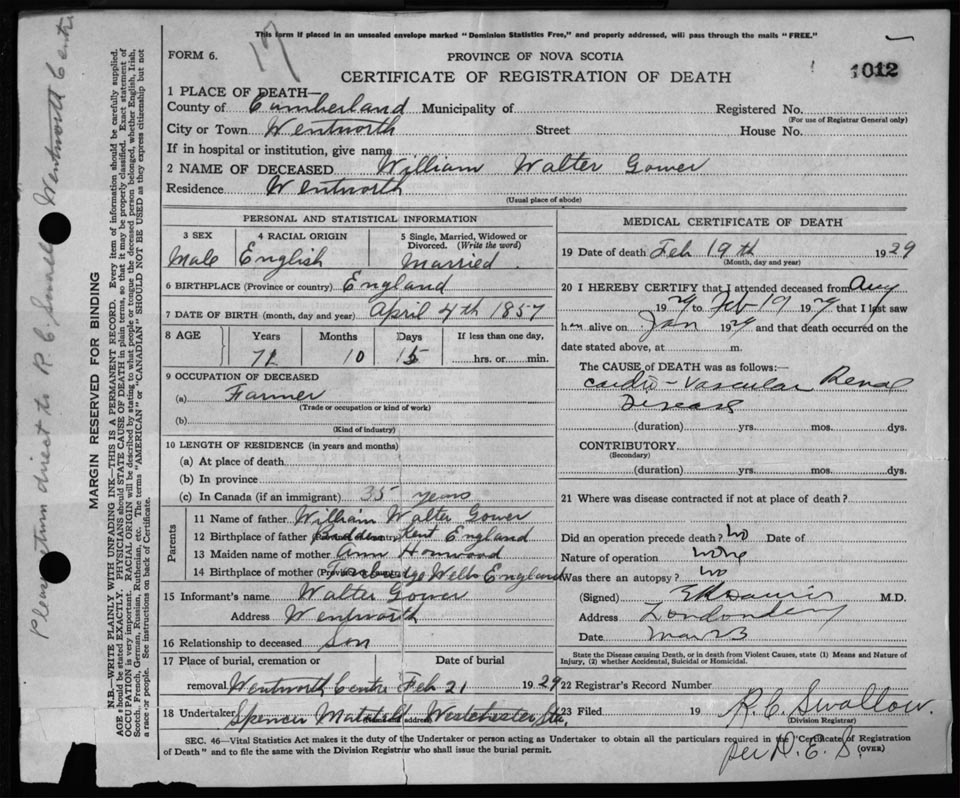 This form if placed in an unsealed envelope marked "Dominion Statistics Free," and properly addressed, will pass through the mails "FREE."
FORM 6.
17
PROVINCE OF NOVA SCOTIA
CERTIFICATE OF REGISTRATION OF DEATH
1012
1 PLACE OF DEATH—
County of Cumberland Municipality of
Registered No.
(For use of Registrar General only)
City or Town Wentworth Street House No.
If in hospital or institution, give name
2 NAME OF DECEASED William Walter Gower
Residence Wentworth
(Usual place of abode)
PERSONAL AND STATISTICAL INFORMATION
3 SEX
Male
4 RACIAL ORIGIN
English
5 Single, Married, Widowed or Divorced. (Write the word)
Married
6 BIRTHPLACE (Province or country) England
7 DATE OF BIRTH (month, day and year) April 4th 1857
8 AGE Years Months Days If less than one day,
71 10 15 hrs. or min.
9 OCCUPATION OF DECEASED
(a) Farmer
(Trade or occupation or kind of work)
(b)
(Kind of industry)
10 LENGTH OF RESIDENCE (in years and months)
(a) At place of death
(b) In province
(c) In Canada (if an immigrant) 35 years
Parents
11 Name of father William Walter Gower
12 Birthplace of father Kent England
13 Maiden name of mother Ann Honwood
14 Birthplace of mother Wells England
15 Informant's name Walter Gower
Address Wentworth
16 Relationship to deceased Son
17 Place of burial, cremation or Date of burial
removal Wentworth Centre Feb 21 1929
18 Undertaker Spencer address Westchester Stn
MEDICAL CERTIFICATE OF DEATH
19 Date of death Feb 19th 1929
(Month, day and year)
20 I HEREBY CERTIFY that I attended deceased from Aug
1929 to Feb 19 1929 that I last saw
him alive on Jan 1929 and that death occurred on the
date stated above, at m.
The CAUSE of DEATH was as follows:
Cardio-Vascular Renal
Disease
(duration) yrs. mos. dys.
CONTRIBUTORY
(Secondary)
(duration) yrs. mos. dys.
21 Where was disease contracted if not at place of death?
Did an operation precede death? No Date of
Nature of operation none
Was there an autopsy? no
(Signed) M.D.
Address Londonderry
Date Mar 23
State the Disease causing Death, or in death from Violent Causes, state (1) Means and Nature of
Injury, (2) whether Accidental, Suicidal or Homicidal.
22 Registrar's Record Number
23 Filed 19 R. C. Swallow.
(Division Registrar)
per D. E. S.
SEC. 46—Vital Statistics Act makes it the duty of the Undertaker or person acting as Undertaker to obtain all the particulars required in the "Certificate of Registration
of Death" and to file the same with the Division Registrar who shall issue the burial permit.
(OVER)
MARGIN RESERVED FOR BINDING
N.B.—WRITE PLAINLY WITH UNFADING INK—THIS IS A PERMANENT RECORD. Every item of information should be carefully supplied.
AGE should be stated EXACTLY. PHYSICIANS should STATE CAUSE OF DEATH in plain terms, so that it may be properly classified. Exact statement of
OCCUPATION is very important. RACIAL ORIGIN will be described by stating to what people or tongue the deceased person belonged, whether English, Irish,
Scotch, French, German, Russian, Ruthenian, etc. The terms "AMERICAN" or "CANADIAN" SHOULD NOT BE USED as they express citizenship but not
a race or people. See instructions on back of Certificate.
Please return direct to R. C. Swallow Wentworth Centre